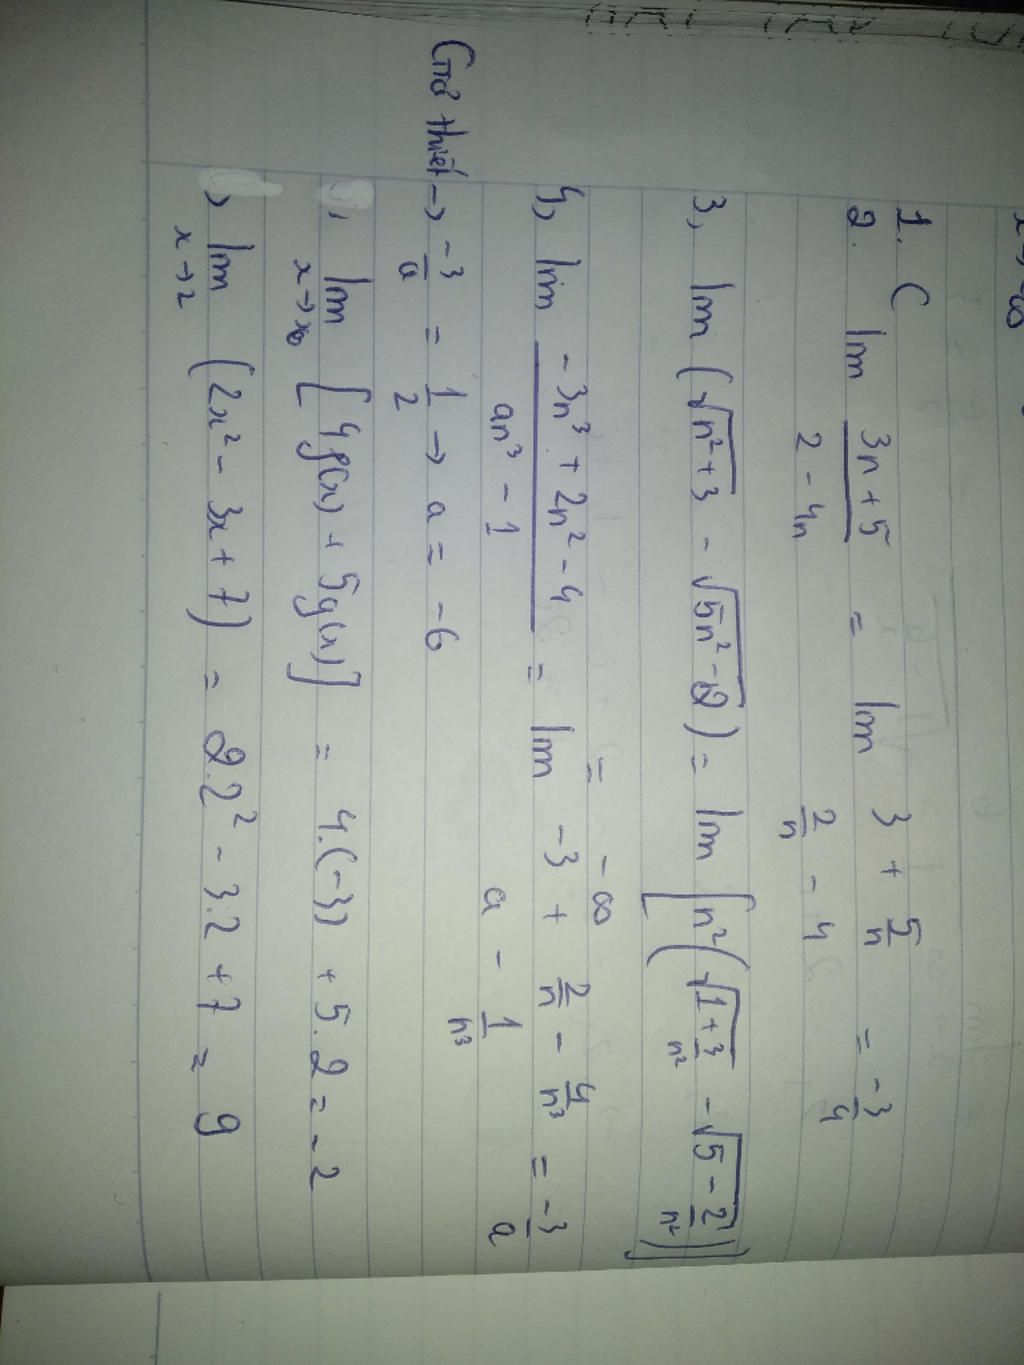 1. C
2. lim (3n + 5)/(2 - 4n) = lim (3 + 5/n)/(2/n - 4) = -3/4
3, lim (√(n² + 3) - √(5n² - 2)) = lim [n²(√(1 + 3/n²) - √(5 - 2/n²))]
= -∞
4, lim (-3n³ + 2n² - 4)/(an³ - 1) = lim (-3 + 2/n - 4/n³)/(a - 1/n³) = -3/a
Giả thiết → -3/a = 1/2 → a = -6
, lim x→x₀ [4f(x) + 5g(x)] = 4.(-3) + 5.2 = -2
) lim x→2 (2x² - 3x + 7) = 2.2² - 3.2 + 7 = 9